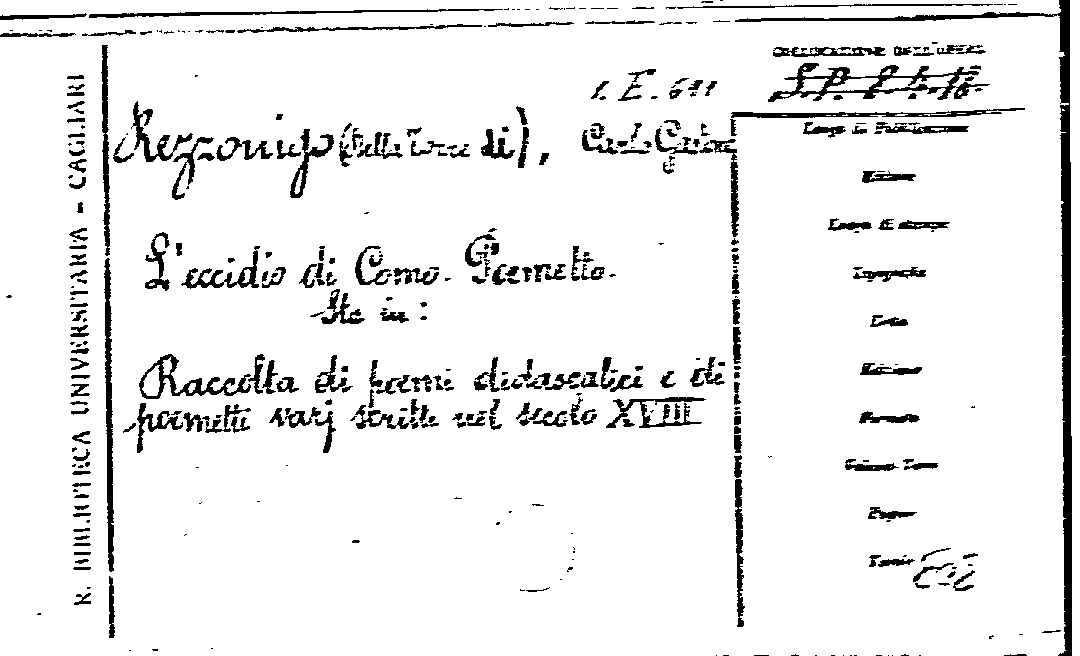 R. BIBLIOTECA UNIVERSITARIA - CAGLIARI
COLLOCAZIONE DELL'OPERA
1. E. 611
S.P. 2.4.16.
Rezzonigo (della Torre di), Carlo Gaston
L'eccidio di Como. Poemetto.
Sta in:
Raccolta di poemi didascalici e di
poemetti varj scritti nel secolo XVIII
Luogo di Pubblicazione
Edizione
Luogo di stampa
Tipografia
Data
Edizione
Formato
Volume
Pagine